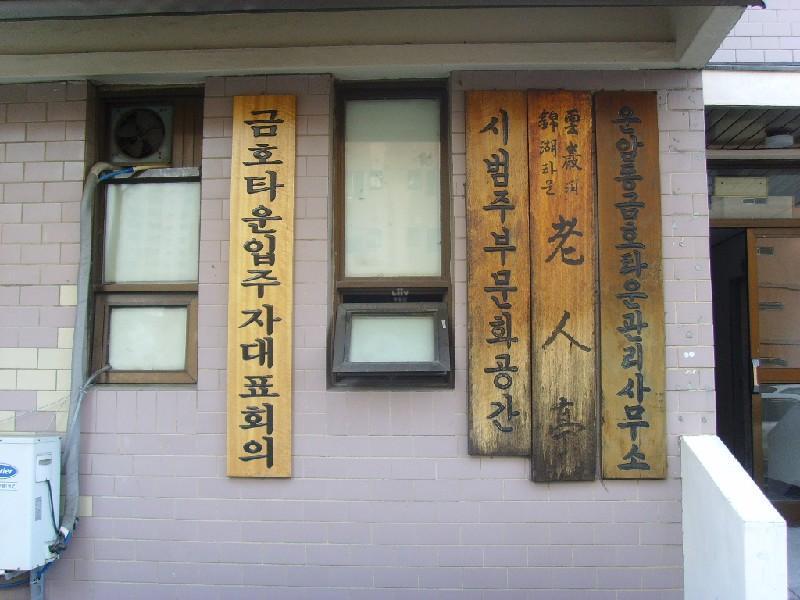 금호타운입주자대표회의
시범주부문화공간
雲巖洞
錦湖타운
老人亭
운암동금호타운관리사무소